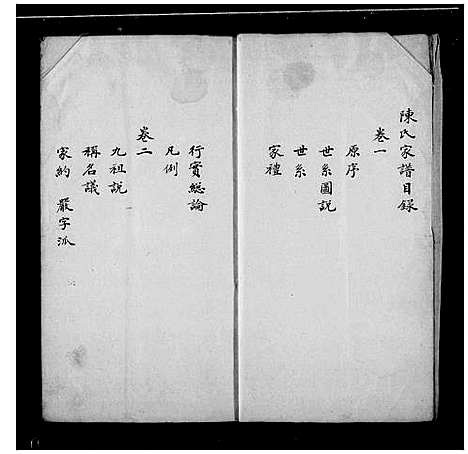 陳氏家譜目錄
卷一
原序
世系圖説
世系
家禮
行實総論
凡例
卷二
九祖説
稱名議
家約 嚴字派